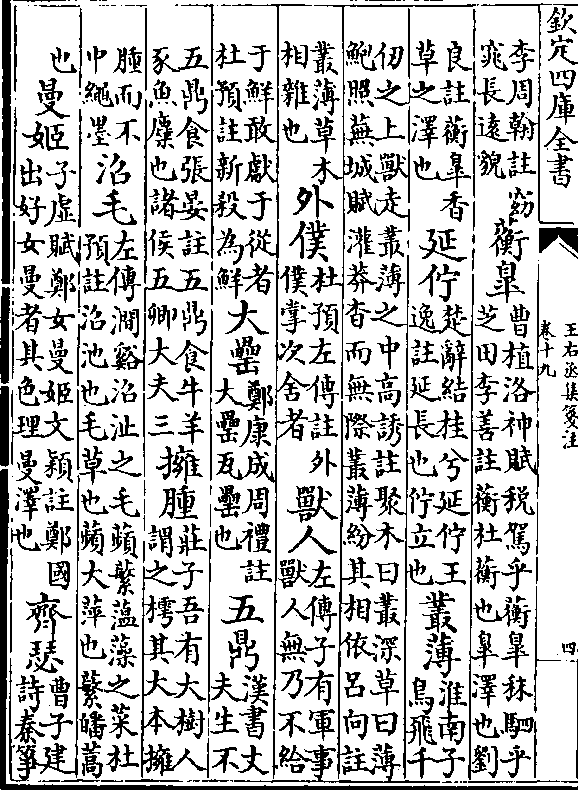 欽定四庫全書
王右丞集箋注
卷十九
四
李周翰註窈
窕長遠貌
蘅皐
曹植洛神賦税駕乎蘅皐秣駟乎
芝田李善註蘅杜蘅也皐澤也劉
良註蘅皐香
草之澤也
延佇
楚辭結桂兮延佇王
逸註延長也佇立也
叢薄
淮南子
鳥飛千
仞之上獸走叢薄之中高誘註聚木曰叢深草曰薄
鮑照蕪城賦灌莽杳而無際叢薄紛其相依呂向註
叢薄草木
相雜也
外僕
杜預左傳註外
僕掌次舍者
獸人
左傳子有軍事
獸人無乃不給
于鮮敢獻于從者
杜預註新殺為鮮
大罍
鄭康成周禮註
大罍瓦罍也
五鼎
漢書丈
夫生不
五鼎食張晏註五鼎食牛羊
豕魚麋也諸侯五卿大夫三
擁腫
莊子吾有大樹人
謂之樗其大本擁
腫而不
中繩墨
沼毛
左傳澗谿沼沚之毛蘋蘩薀藻之菜杜
預註沼池也毛草也蘋大萍也蘩皤蒿
也
曼姬
子虛賦鄭女曼姬文穎註鄭國
出好女曼者其色理曼澤也
齊瑟
曹子建
詩秦箏